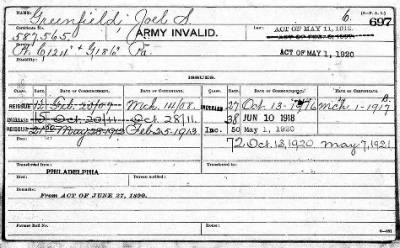 NAME: Greenfield, Joel S. 6. 697
Certificate No. 587,565. ARMY INVALID. ACT OF MAY 11, 1912
Service: A. C 121 & G 186 Pa. ACT OF MAY 1, 1920
Disability:
ISSUES.
CLASS. RATE. DATE OF COMMENCEMENT. DATE OF CERTIFICATE. CLASS. RATE. DATE OF COMMENCEMENT. DATE OF CERTIFICATE.
REISSUE 12 Feb. 20/07 Mch. 14/08. INCREASE 27 Oct. 13-1916 Mch 1-1917
REISSUE 15 Oct. 20/11 Oct. 28/11. 38 JUN 10 1918
REISSUE 21 May 28-1912 Feb 25-1913 Inc. 50 May 1, 1920
72 Oct. 13, 1920 May 7, 1921
Transferred from
PHILADELPHIA
Transferred to
From ACT OF JUNE 27, 1890.
Former Roll No.